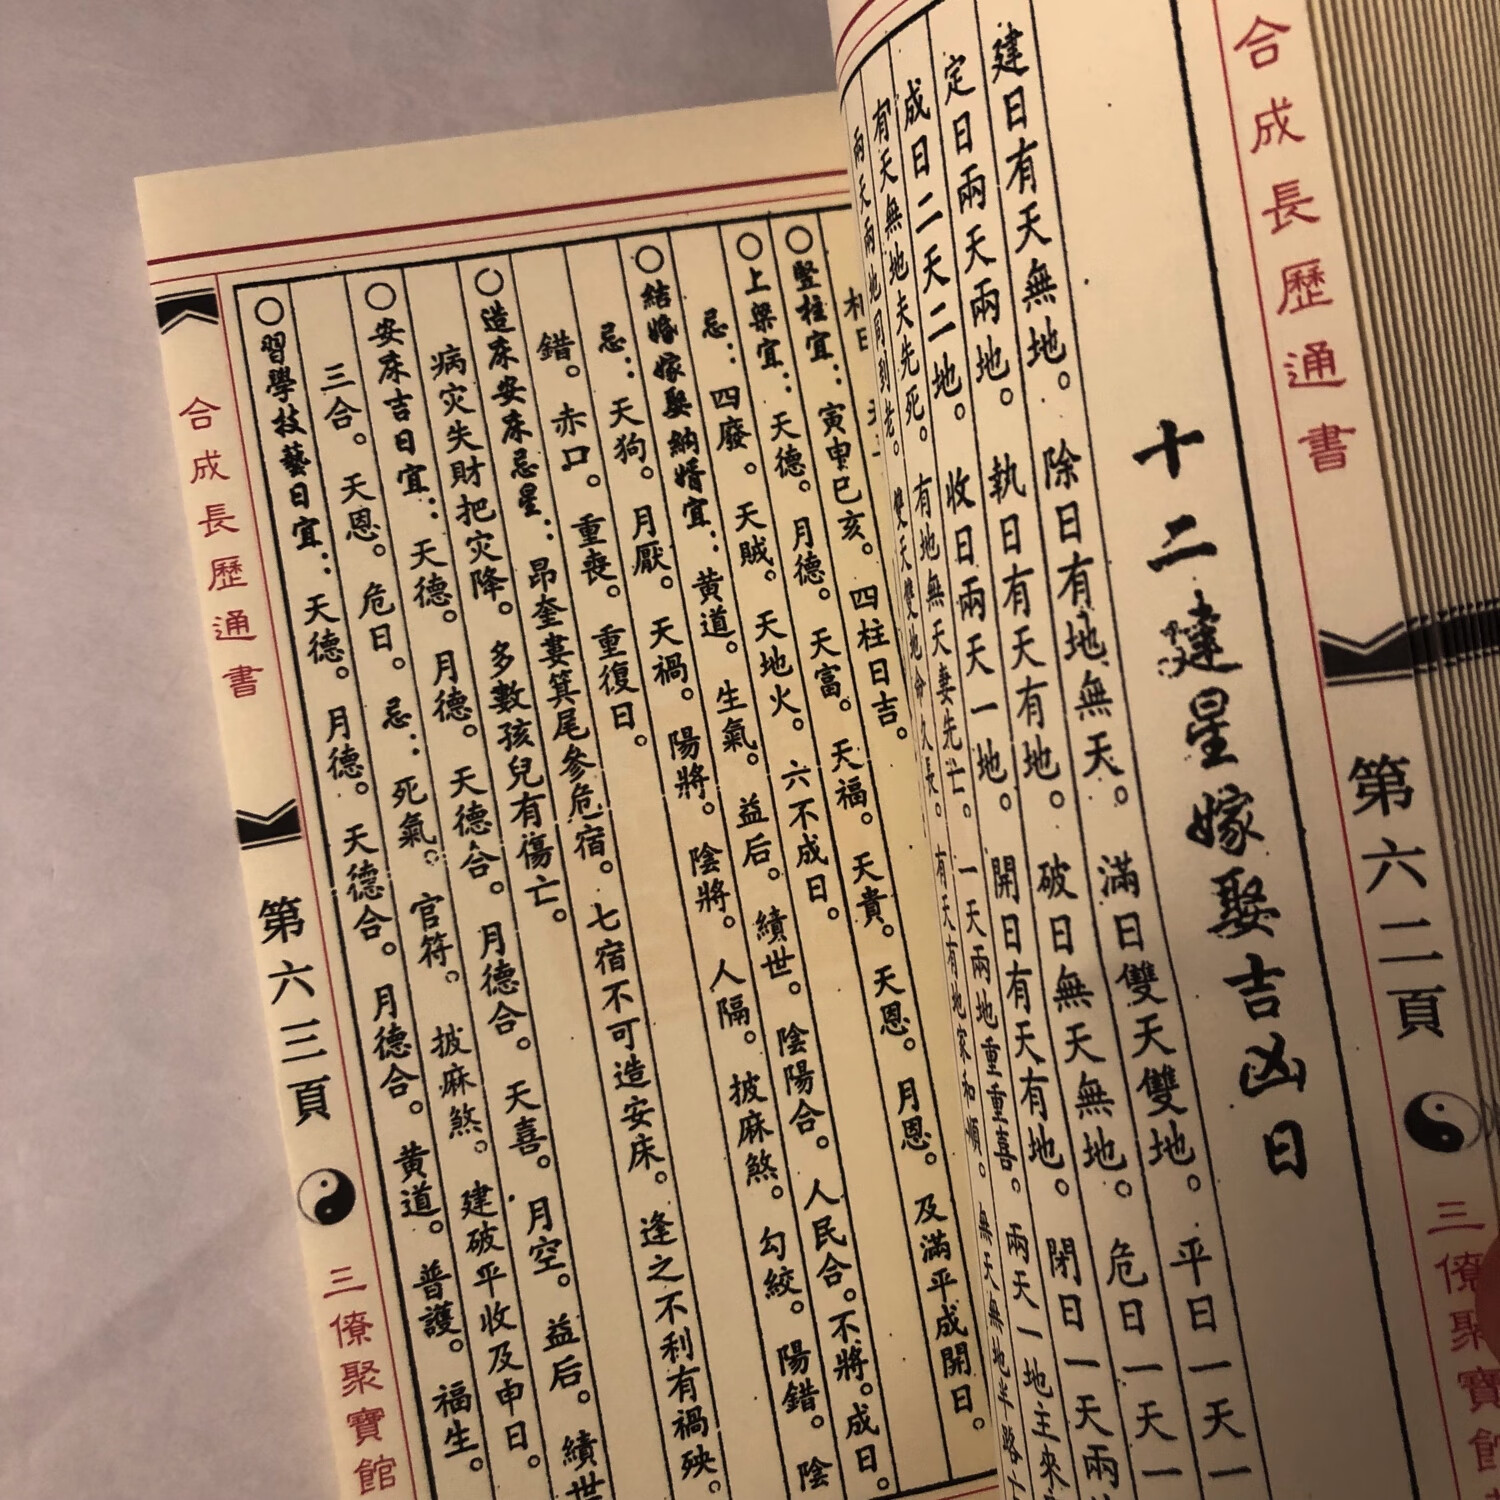 合成長歷通書
第六二頁
三僚聚寶館
十二建星嫁娶吉凶日
建日有天無地。除日有地無天。滿日雙天雙地。平日一天一
定日兩天兩地。執日有天有地。破日無天無地。危日一天一
成日二天二地。收日兩天一地。開日有天有地。閉日一天兩
有天無地夫先死。有地無天妻先亡。一天兩地重重喜。兩天一地主來
兩天兩地同到老。雙天雙地份久長。有天有地家和順。無天無地半路
○豎柱宜：寅申巳亥。四柱日吉。天福。天貴。天恩。月恩。及滿平成開日。
○上樑宜：天德。月德。天富。
忌：四廢。天賊。天地火。六不成日。
○結婚嫁娶納婿宜：黃道。生氣。益后。續世。陰陽合。人民合。不將。成日。
忌：天狗。月厭。天禍。陽將。陰將。人隔。披麻煞。勾絞。陽錯。陰
錯。赤口。重喪。重復日。
○造床安床忌星：昂奎婁箕尾參危宿。七宿不可造安床。逢之不利有禍殃。
病灾失財把灾降。多數孩兒有傷亡。
○安床吉日宜：天德。月德。天德合。月德合。天喜。月空。益后。續世
三合。天恩。危日。忌：死氣。官符。披麻煞。建破平收及申日。
○習學技藝日宜：天德。月德。天德合。月德合。黃道。普護。福生。
合成長歷通書
第六三頁
三僚聚寶館